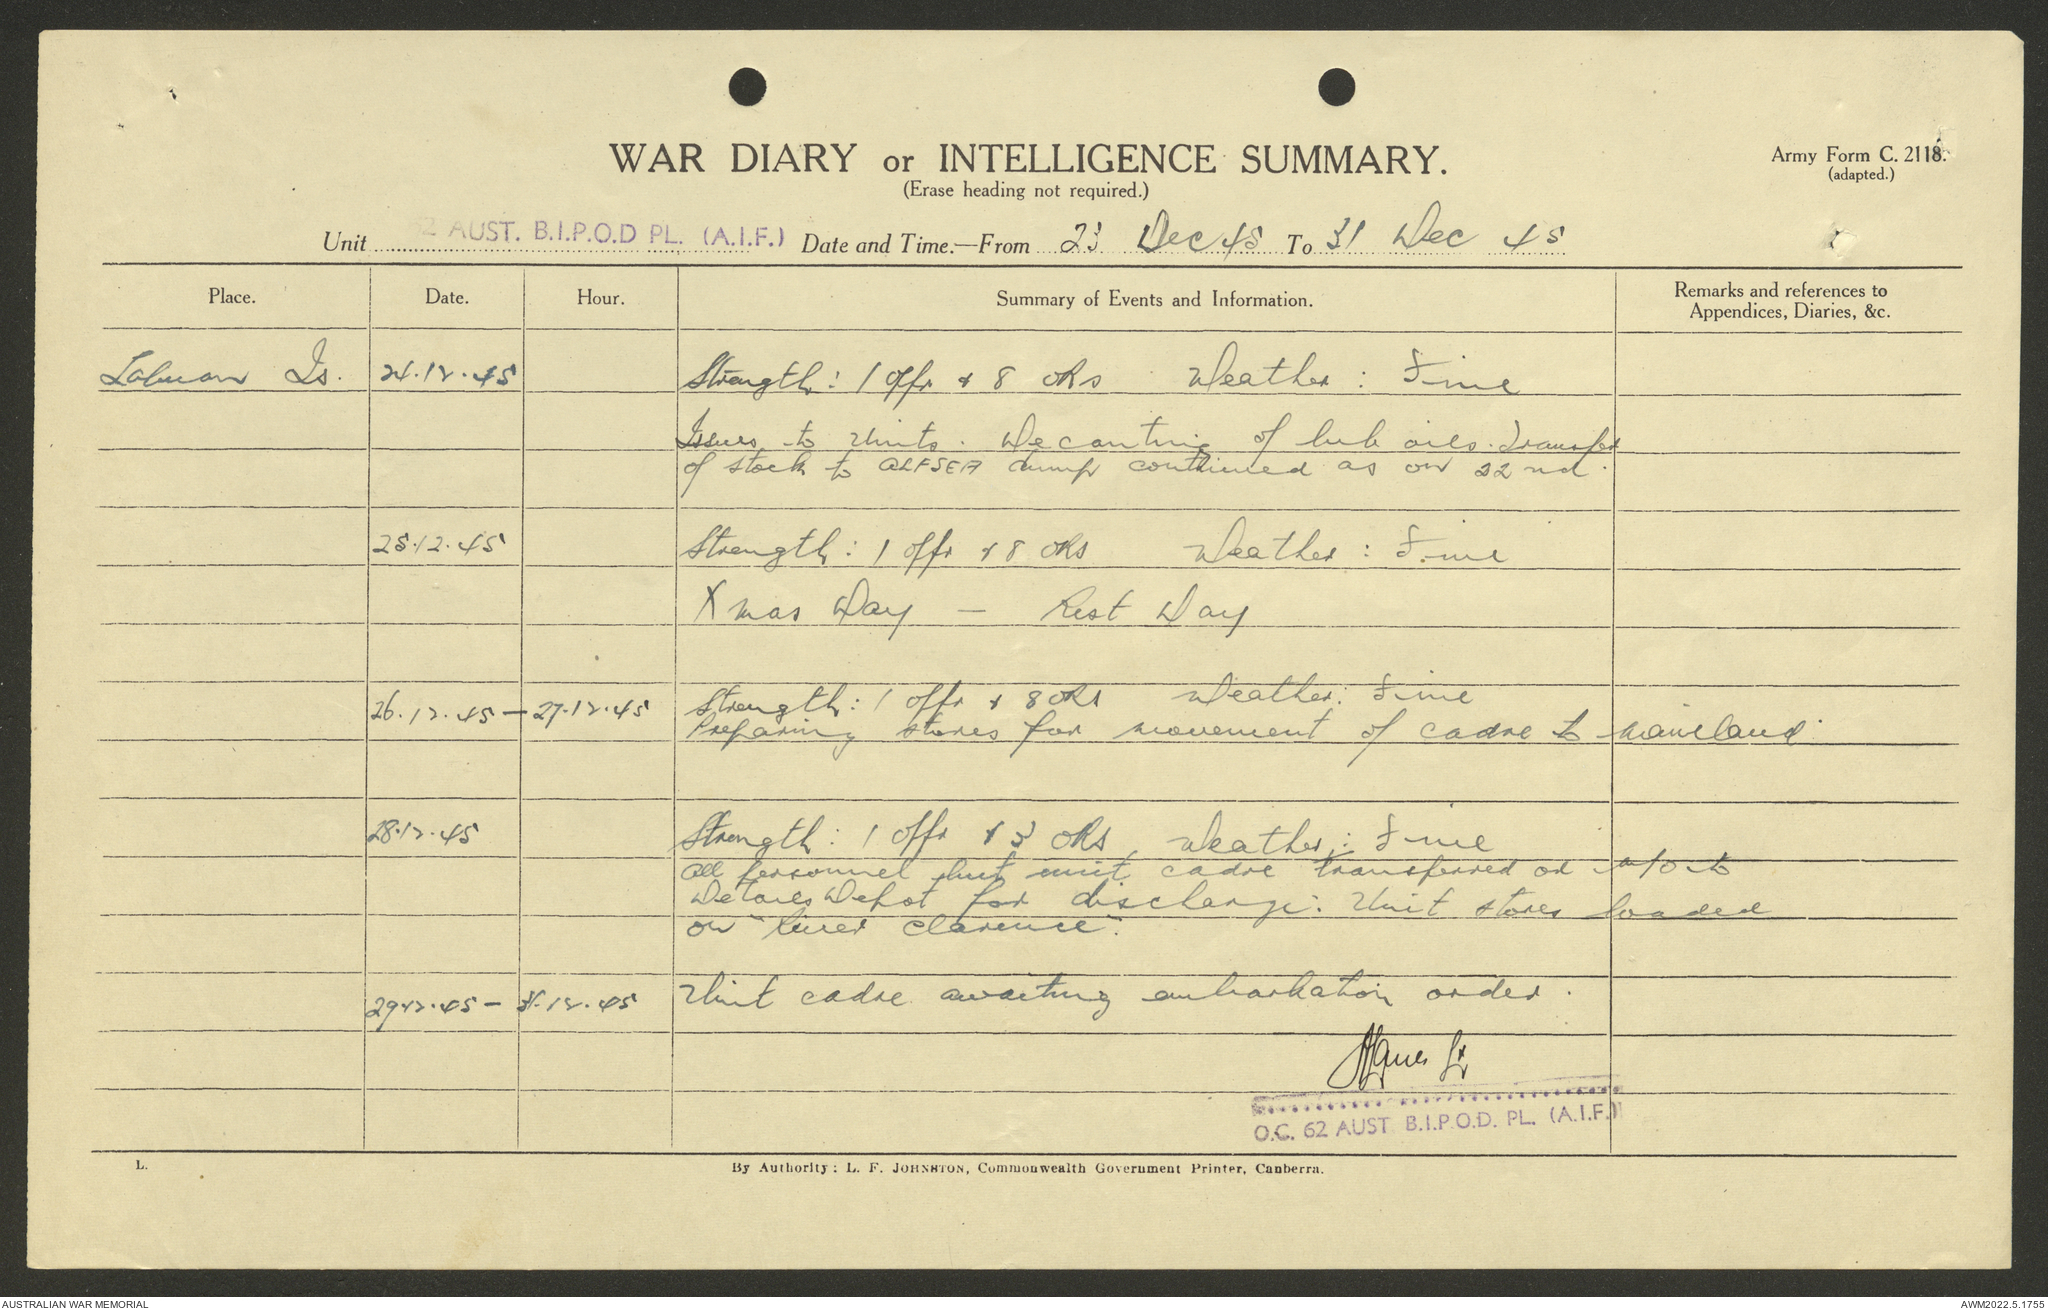 WAR DIARY or INTELLIGENCE SUMMARY.
(Erase heading not required.)
Army Form C. 2118.
(adapted.)
Unit 62 AUST. B.I.P.O.D PL. (A.I.F.) Date and Time.—From 23 Dec 45 To 31 Dec 45
Place. Date. Hour. Summary of Events and Information. Remarks and references to
Appendices, Diaries, &c.
Labuan Is. 24.12.45 Strength: 1 offr & 8 ORs Weather: Fine
Issues to Units. Decanting of lub oils. Transfer
of stock to ALFSEA dump continued as on 22nd.
25.12.45 Strength: 1 offr & 8 ORs Weather: Fine
Xmas Day — Rest Day
26.12.45 – 27.12.45 Strength: 1 offr & 8 ORs Weather: Fine
Preparing stores for movement of cadre to mainland.
28.12.45 Strength: 1 offr & 3 ORs Weather: Fine
All personnel but unit cadre transferred on to
Details Depot for discharge. Unit stores loaded
on "River Clarence".
29.12.45 – 31.12.45 Unit cadre awaiting embarkation order.
Lt
O.C. 62 AUST. B.I.P.O.D. PL. (A.I.F.)
L. By Authority: L. F. JOHNSTON, Commonwealth Government Printer, Canberra.
AUSTRALIAN WAR MEMORIAL AWM2022.5.1755